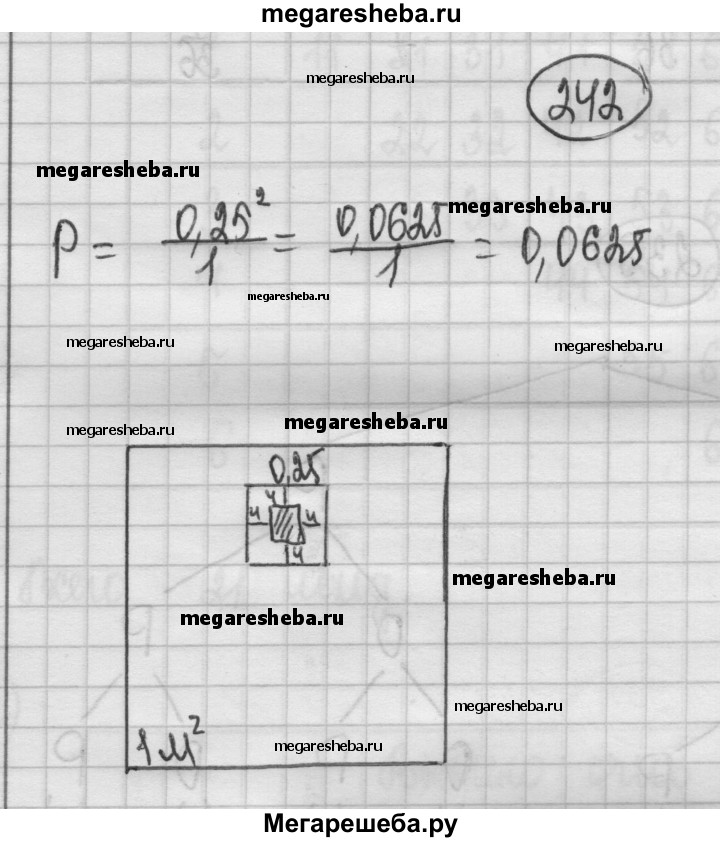 megaresheba.ru
megaresheba.ru
242
megaresheba.ru
megaresheba.ru
P = 0,25²/1 = 0,0625/1 = 0,0625
megaresheba.ru
megaresheba.ru
megaresheba.ru
megaresheba.ru
megaresheba.ru
0,25
4
4 4
4
megaresheba.ru
megaresheba.ru
megaresheba.ru
1 м²
megaresheba.ru
Мегарешеба.ру